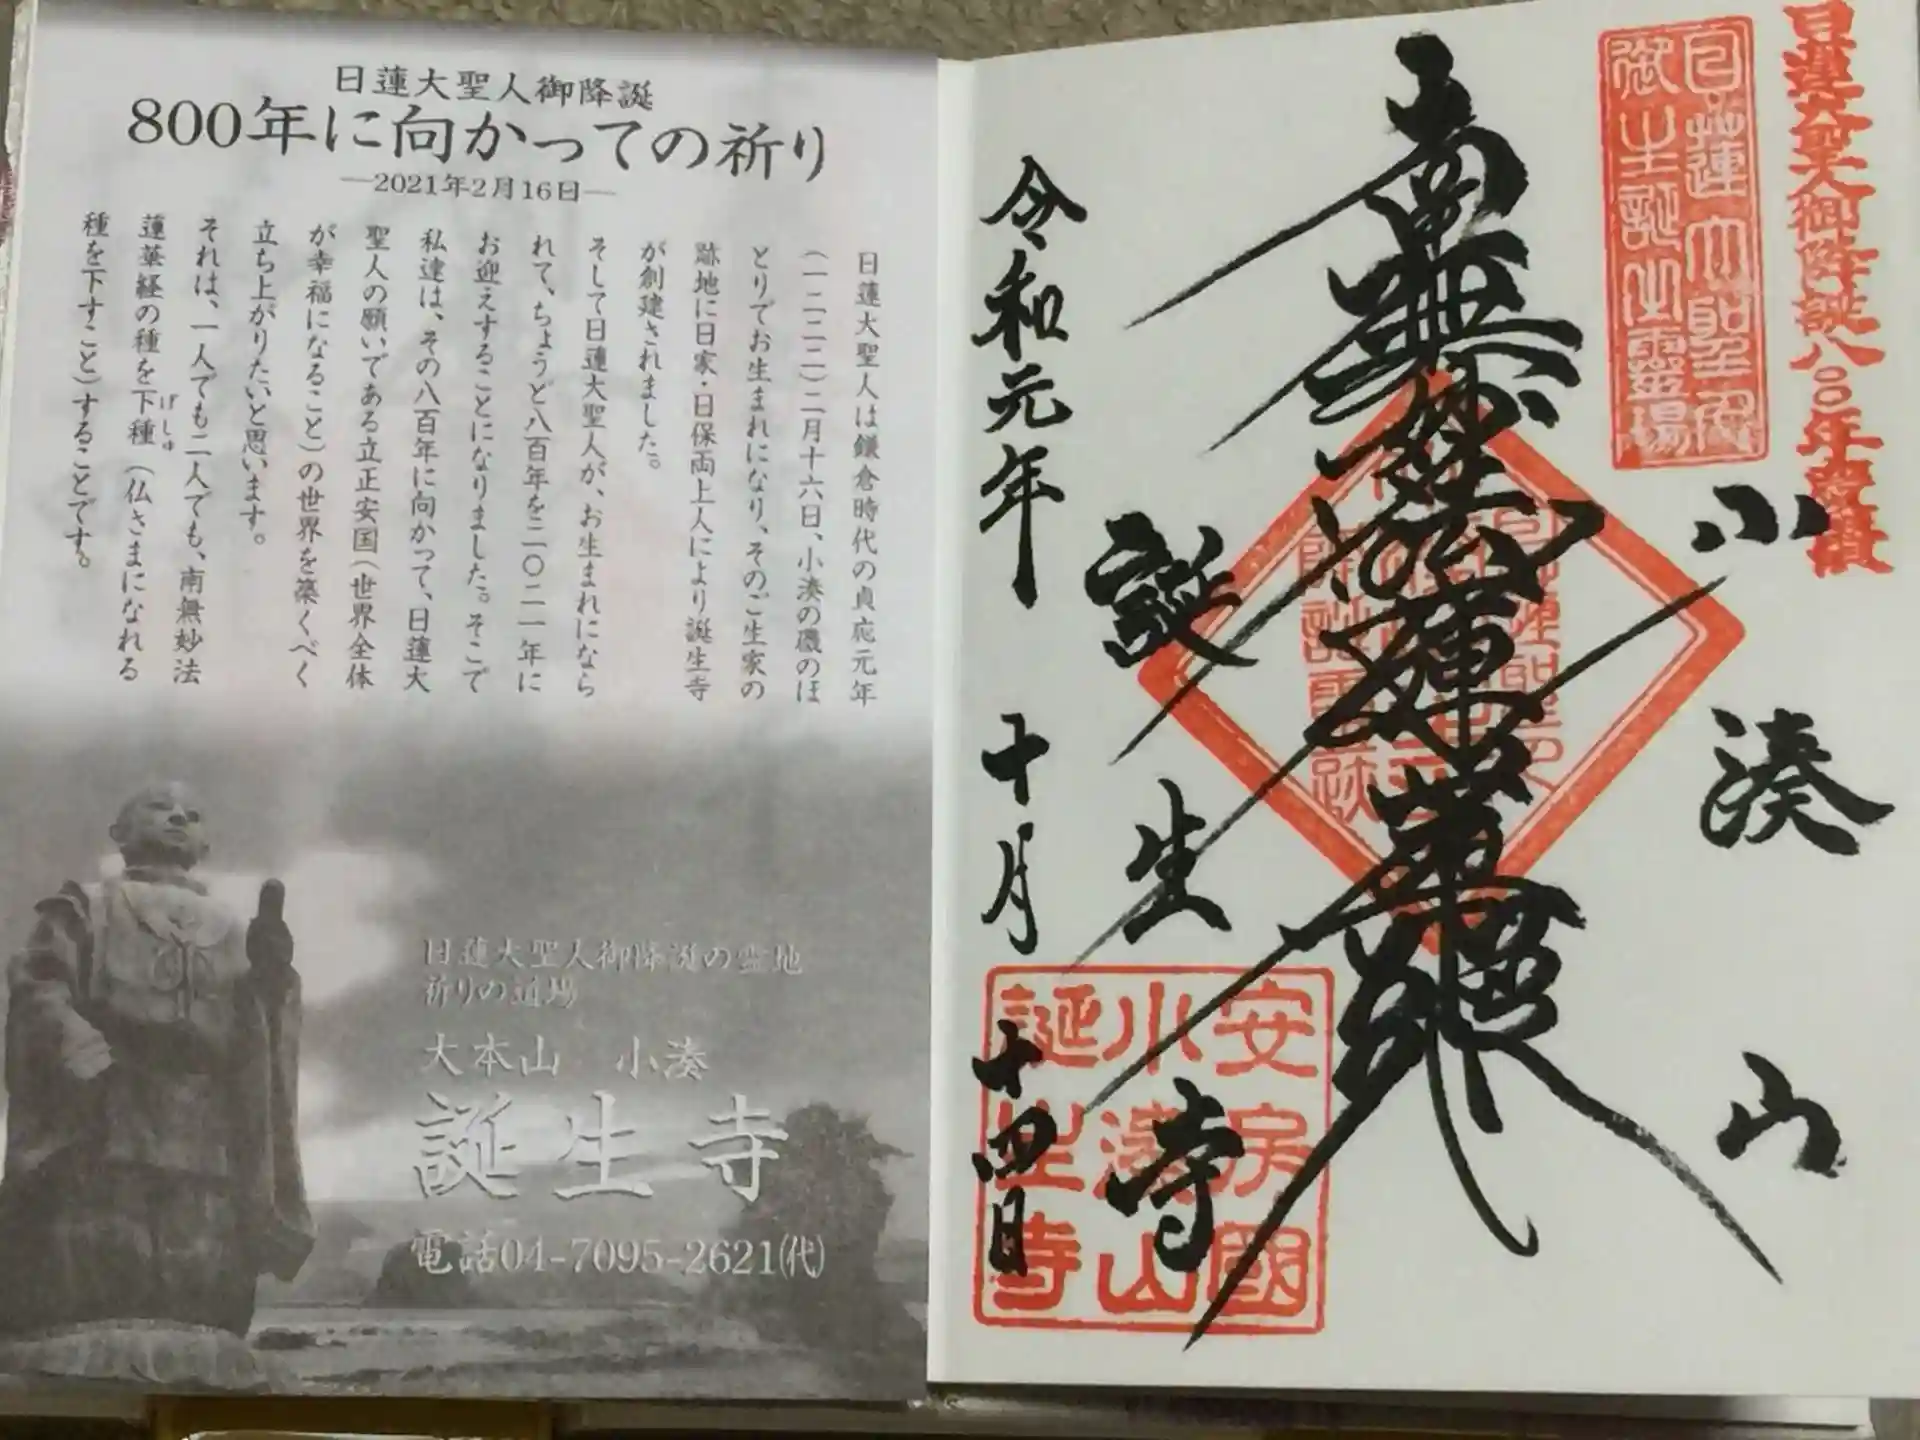 日蓮大聖人御降誕
800年に向かっての祈り
―2021年2月16日―
日蓮大聖人は鎌倉時代の貞応元年
(一二二二)二月十六日、小湊の磯のほ
とりでお生まれになり、そのご生家の
跡地に日家・日保両上人により誕生寺
が創建されました。
そして日蓮大聖人が、お生まれになら
れて、ちょうど八百年を二〇二一年に
お迎えすることになりました。そこで
私達は、その八百年に向かって、日蓮大
聖人の願いである立正安国(世界全体
が幸福になること)の世界を築くべく
立ち上がりたいと思います。
それは、一人でも二人でも、南無妙法
蓮華経の種を下種(仏さまになれる
げしゅ
種を下すこと)することです。
日蓮大聖人御降誕の霊地
祈りの道場
大本山 小湊
誕生寺
電話04-7095-2621(代)
日蓮大聖人御降誕八〇〇年慶讃
日蓮大聖人
御生誕之霊場
小湊山
南無妙法蓮華経
誕生寺
令和元年 十月 十四日
安房國
小湊山
誕生寺